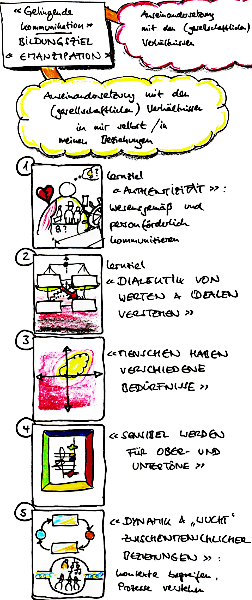 « Gelingende
Kommunikation »
BILDUNGSZIEL
« EMANZIPATION »
Auseinandersetzung
mit den (gesellschaftlichen)
Verhältnissen
Auseinandersetzung mit den
(gesellschaftlichen) Verhältnissen
in mir selbst / in
meinen Beziehungen
1
Lernziel
« AUTHENTIZITÄT »:
wesensgemäß und
personförderlich
kommunizieren
2
Lernziel
« DIALEKTIK VON
WERTEN & IDEALEN
VERSTEHEN »
3
« MENSCHEN HABEN
VERSCHIEDENE
BEDÜRFNISSE »
4
« SENSIBEL WERDEN
FÜR OBER- UND
UNTERTÖNE »
5
« DYNAMIK & „WUCHT"
ZWISCHENMENSCHLICHER
BEZIEHUNGEN »:
Konzepte begreifen,
Prozesse verstehen